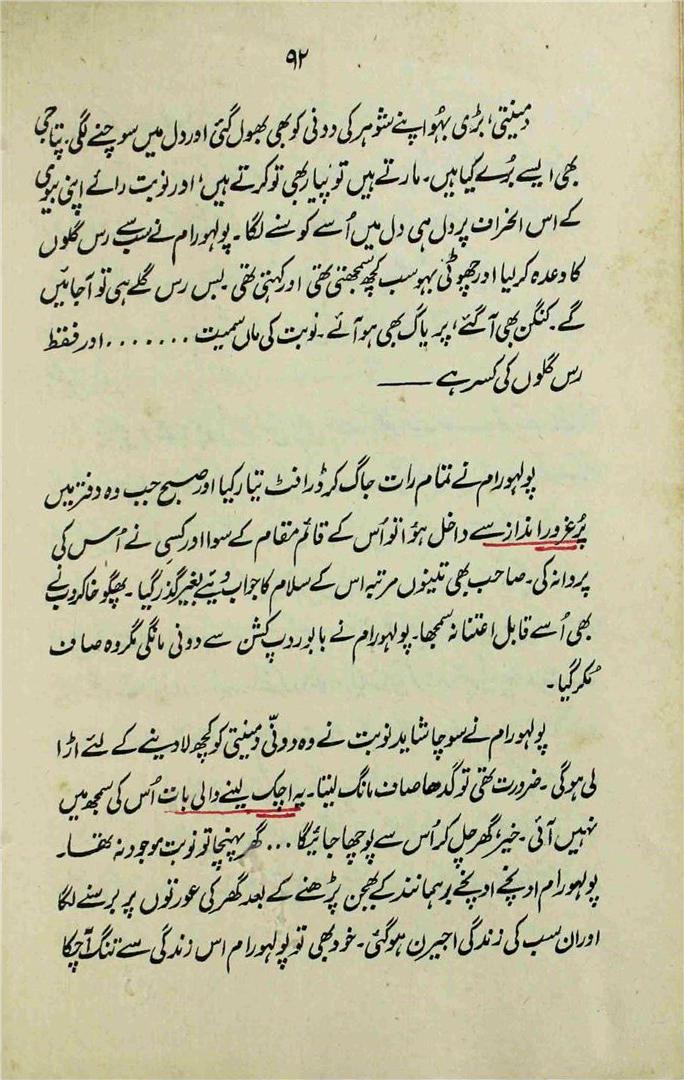 ۹۲
دمینتی، بڑی بہُو اپنے شوہر کی دونی کو بھی بھول گئی اور دل میں سوچنے لگی۔ پتا جی
بھی ایسے بُرے کیا ہیں۔ مارتے ہیں تو پیار بھی تو کرتے ہیں، اور نوبت رائے اپنی بیوی
کے اس انحراف پر دل ہی دل میں اُسے کوسنے لگا۔ پولہورام نے سب سے رس گلوں
کا وعدہ کر لیا اور چھوٹی بہو سب کچھ سمجھتی تھی اور کہتی تھی بس رس گلے ہی تو آجائیں
گے۔ کنگن بھی آ گئے، پریاگ بھی ہو آئے۔ نوبت کی ماں سمیت ....... اور فقط
رس گلوں کی کسر ہے ——
پولہورام نے تمام رات جاگ کر ڈرافٹ تیار کیا اور صبح جب وہ دفتر میں
پُرغرور انداز سے داخل ہوٗا تو اُس کے قائم مقام کے سوا اور کسی نے اُس کی
پروا نہ کی۔ صاحب بھی تینوں مرتبہ اس کے سلام کا جواب دیئے بغیر گذر گیا۔ پھگو خاکروب نے
بھی اُسے قابل اعتنا نہ سمجھا۔ پولہورام نے بابو ردپ کشن سے دونی مانگی مگر وہ صاف
مُکر گیا۔
پولہورام نے سوچا شاید نوبت نے وہ دونّی دمینتی کو کچھ لا دینے کے لئے اڑا
لی ہوگی۔ ضرورت تھی تو گدھا صاف مانگ لیتا۔ یہ اچک لینے والی بات اُس کی سمجھ میں
نہیں آئی۔ خیر، گھر چل کر اُس سے پوچھا جائیگا ... گھر پہنچا تو نوبت موجود نہ تھا۔
پولہورام اونچے اونچے برہمانند کے بھجن پڑھنے کے بعد گھر کی عورتوں پر برسنے لگا
اور ان سب کی زندگی اجیرن ہوگئی۔ خود بھی تو پولہورام اس زندگی سے تنگ آچکا